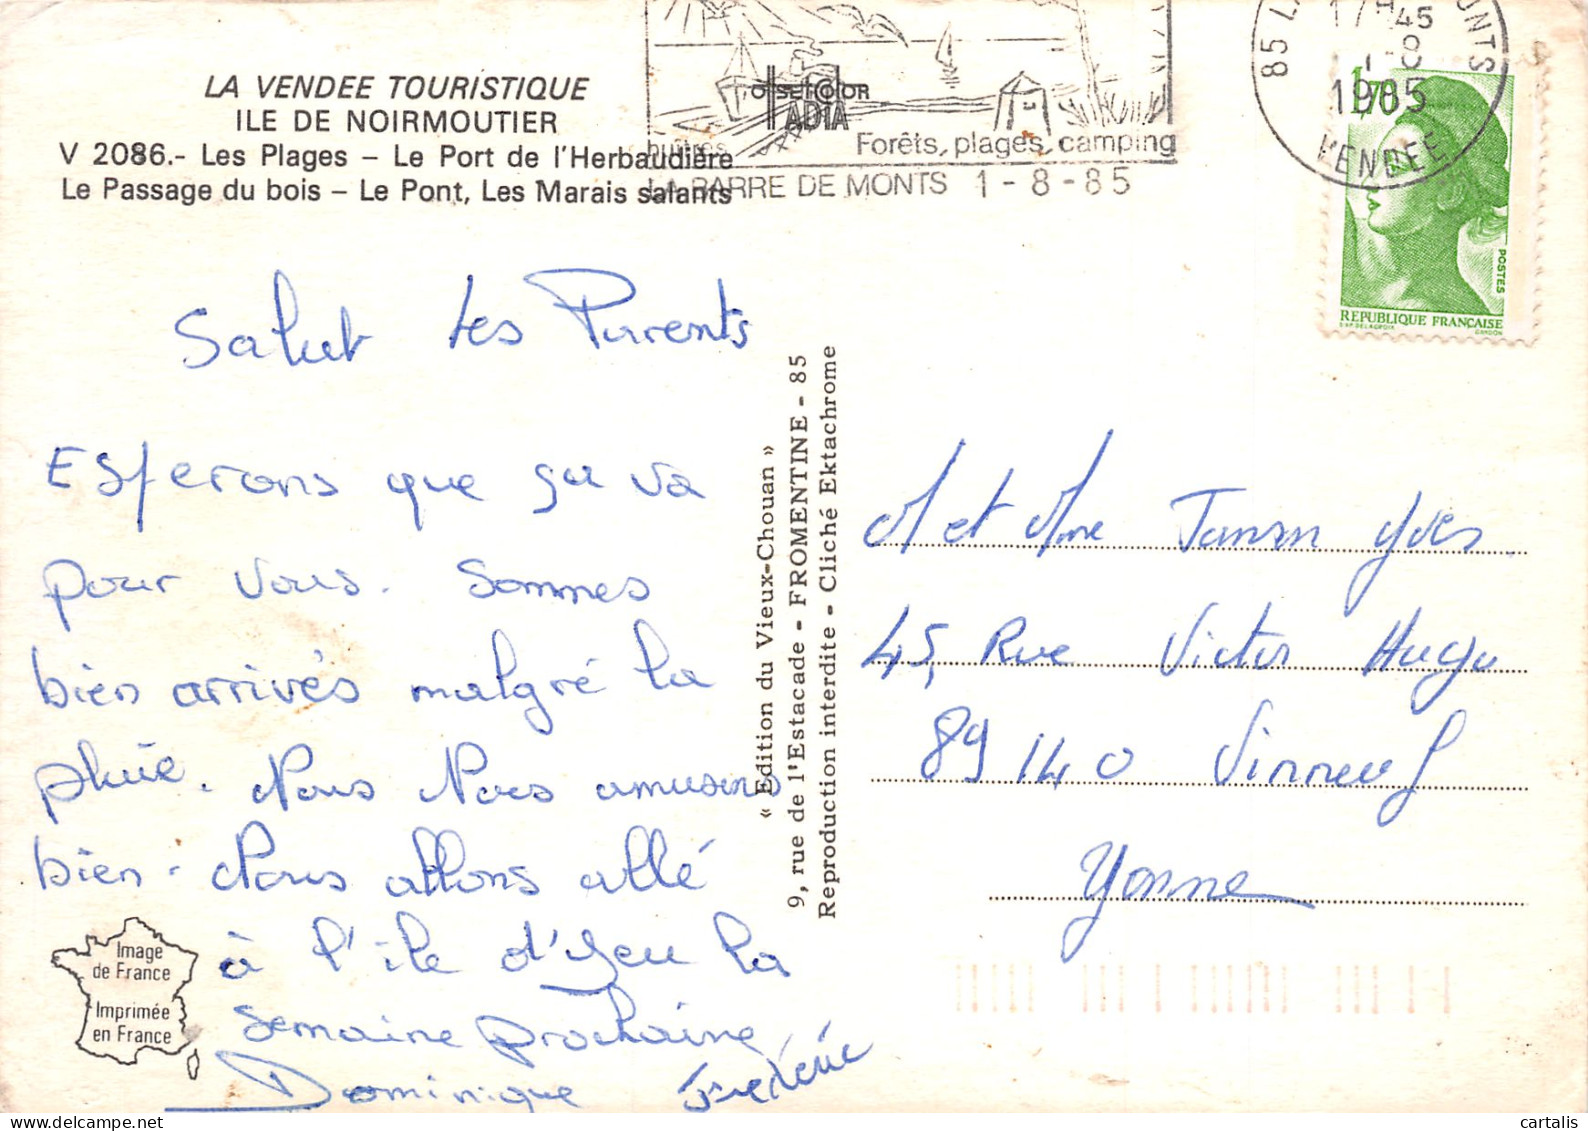 LA VENDEE TOURISTIQUE
ILE DE NOIRMOUTIER
V 2086.- Les Plages – Le Port de l'Herbaudière
Le Passage du bois – Le Pont, Les Marais salants
huitres
Forêts, plages, camping
LA BARRE DE MONTS 1-8-85
85 LA MONTS
17H45
1-8
1985
VENDEE
1,70
POSTES
REPUBLIQUE FRANÇAISE
D'AP. DELACROIX GANDON
Salut les Parents
Esperons que ça va
pour vous. Sommes
bien arrivés malgré la
pluie. Nous Nous amusons
bien. Nous allons allé
à l'ile d'Yeu la
semaine prochaine
Dominique Frederic
Image
de France
Imprimée
en France
« Edition du Vieux-Chouan »
9, rue de l'Estacade - FROMENTINE - 85
Reproduction interdite - Cliché Ektachrome
M et Mme Yves
45, Rue Victor Hugo
89140 Vinneuf
Yonne
cartalis